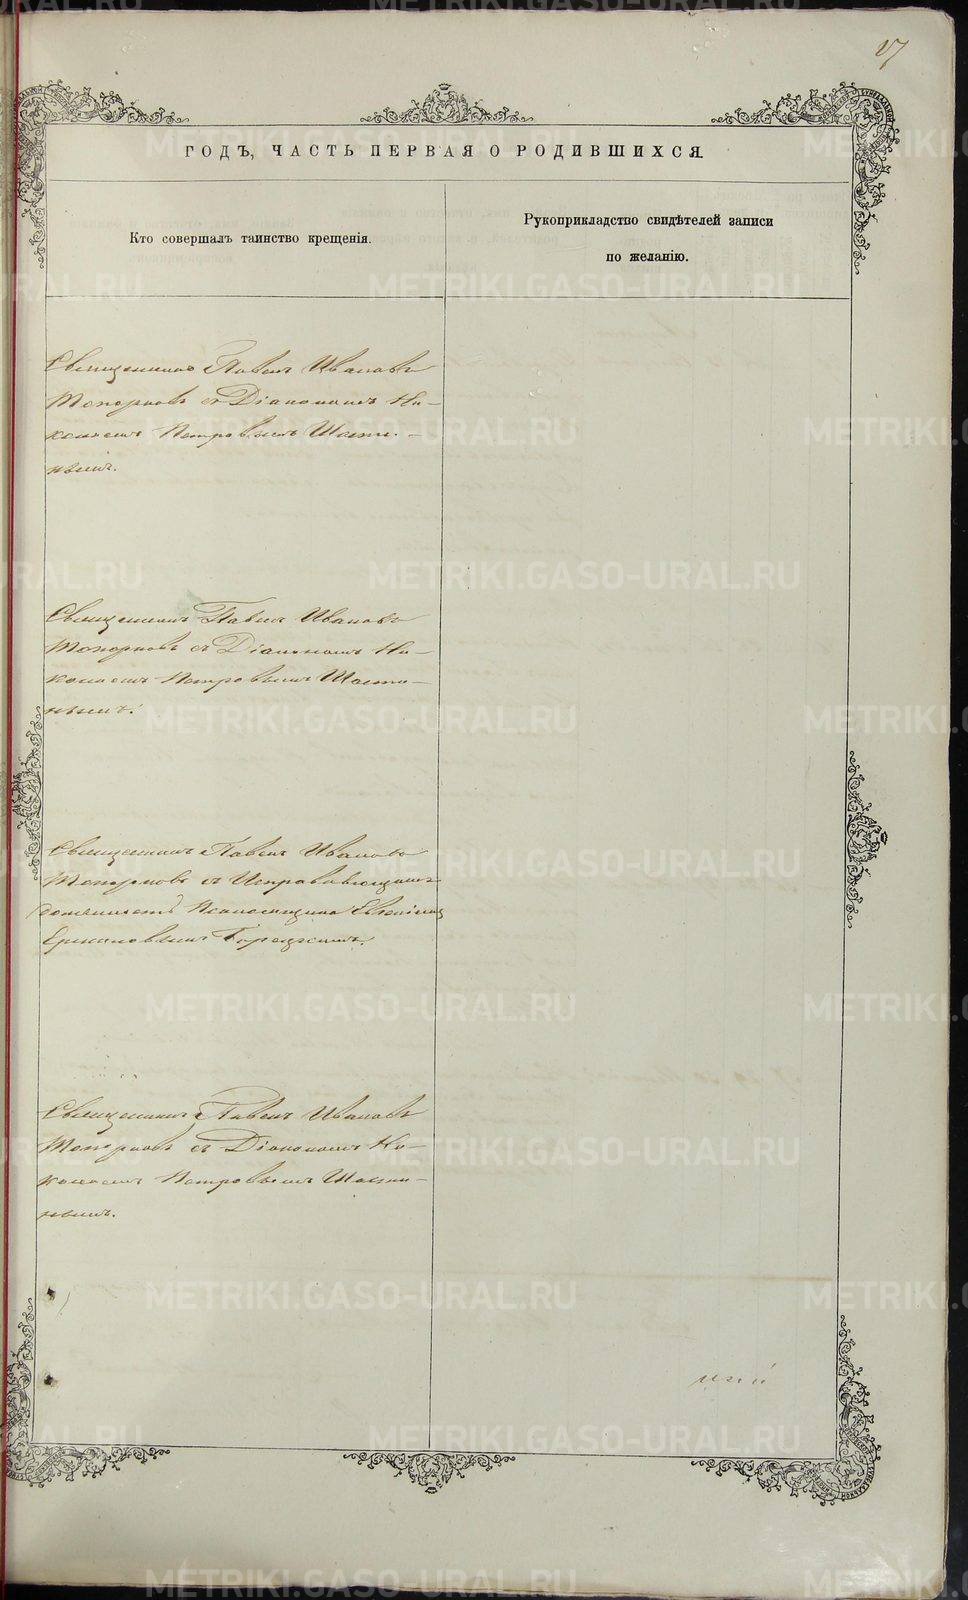 27
ГОДЪ, ЧАСТЬ ПЕРВАЯ О РОДИВШИХСЯ.
Кто совершалъ таинство крещенія.
Рукоприкладство свидѣтелей записи
по желанію.
Священникъ Павелъ Ивановъ
Топорковъ съ Діакономъ Ни-
колаемъ Петровымъ Шасти-
нымъ.
Священникъ Павелъ Ивановъ
Топорковъ съ Діакономъ Ни-
колаемъ Петровымъ Шасти-
нымъ.
Священникъ Павелъ Ивановъ
Топорковъ съ Исправляющимъ
должность Псаломщика
Священникъ Павелъ Ивановъ
Топорковъ съ Діакономъ Ни-
колаемъ Петровымъ Шасти-
нымъ.
METRIKI.GASO-URAL.RU